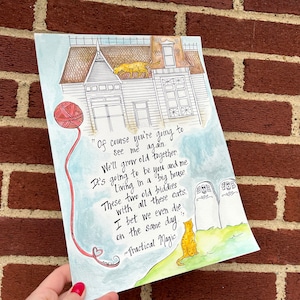 "Of course you're going to
see me again.
We'll grow old together
It's going to be you and me
living in a big house
These two old biddies
with all these cats.
I bet we even die
on the same day."
-Practical Magic